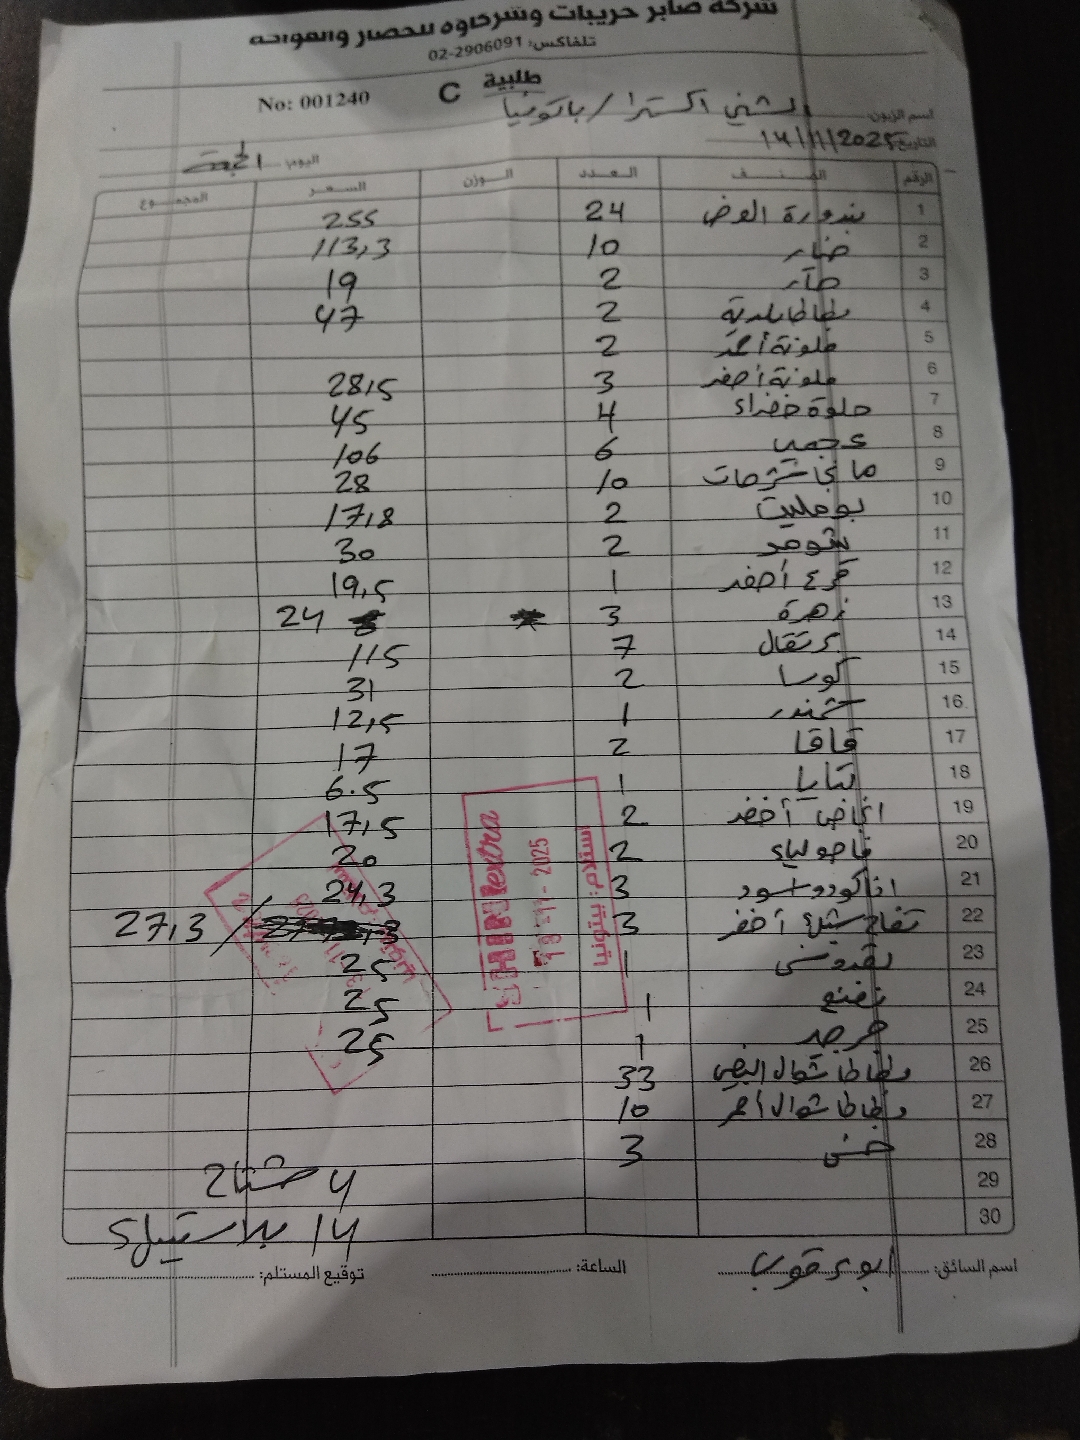 شركة صابر حريبات وشركاؤه للخضار والفواكه
تلفاكس: 02-2906091
طلبية C
No: 001240
اسم الزبون: الشني اكسترا / باتونيا
التاريخ: 14/11/2025
اليوم: الجمعة
الرقم الصنف العدد الوزن السعر المجموع
1 بندورة العرض 24 255
2 خيار 10 113,3
3 2 19
4 بطاطا بلدية 2 47
5 ملونة أحمر 2
6 ملونة أصفر 3 28,5
7 حلوة خضراء 4 45
8 عجمي 6 106
9 10 28
10 بوملي 2 17,8
11 شومر 2 30
12 قرع أصفر 1 19,5
13 زهرة 3 24
14 برتقال 7 115
15 كوسا 2 31
16 شمندر 1 12,5
17 كاكا 2 17
18 1 6.5
19 انجاص أخضر 2 17,5
20 فاصولياء 2 20
21 افاكودو اسود 3 24,3
22 تفاح سيتل أخضر 3 27,3
23 بقدونس 1 25
24 نعنع 1 25
25 جرجر 1 25
26 بطاطا شوال ابيض 33
27 بطاطا شوال أحمر 10
28 خس 3
29 4 مشتاح
30 14 بلاستيك
SHINI extra
2025
استلام: بيتونيا
اسم السائق: ابو يعقوب
الساعة:
توقيع المستلم: